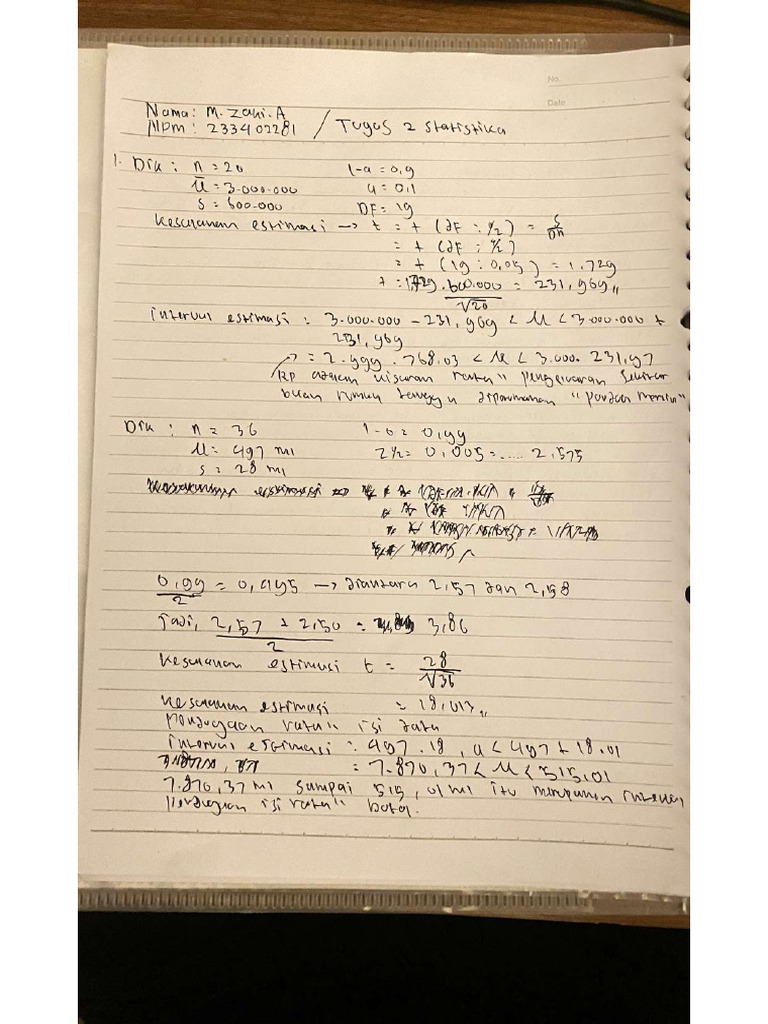 No.
Date
Nama: M. Zaki. A
NPM: 233402281 / Tugas 2 statistika
1. Dik: n = 20 1-a = 0,9
ū = 3.000.000 a = 0,1
s = 600.000 DF = 19
Kesalahan estimasi → t = t (df : α/2) = s/√n
= t (df : α/2)
= t (19 : 0,05) = 1,729
t = 1,729 . 600.000 / √20 = 231,969,,
interval estimasi : 3.000.000 - 231,969 < M < 3.000.000 +
231,969
→ = 2.999.768.03 < M < 3.000.231,97
RP adalah kisaran rata" pengeluaran sekitar
bulan rumah tangga diperumahan "pondok "
Dik : n = 36 1-α = 0,99
M = 497 ml Z½ = 0,005 = ..... 2,575
s = 28 ml
0,99/2 = 0,495 → diantara 2,57 dan 2,58
Jadi, 2,57 + 2,50 / 2 = 3,86
Kesalahan estimasi t = 28/√36
Kesalahan estimasi = 18,013,,
pendugaan rata" isi data
interval estimasi : 497.18, u < 497 + 18.01
= 7.870,37 < M < 515,01
7.870,37 ml sampai 515,01 ml itu merupakan interval
pendugaan isi rata" botol.